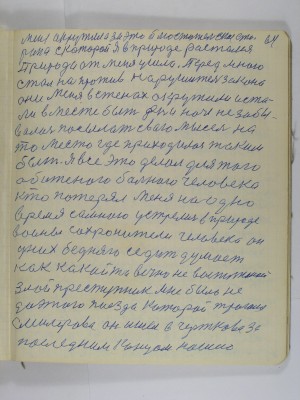 меня окружила за это в
рана с которой я в природе растался 64
Природа от меня ушло. Перед мною
стал на против нарушители закона
они меня в стенах окружили и ста-
ли вместе быть день и ночь не забы-
вал я посылать свого мысль на
то место где приходилося таким
быть. Я все это делал для того
обиженого больного человека
кто потерял меня на одно
время самого устремив в природе
воины сохранители человека он
у них бедняга сидит думает
как какой то вечно не
злой преступник мне было не
до того поезда которой
он ишел в Черткова за
последним концом